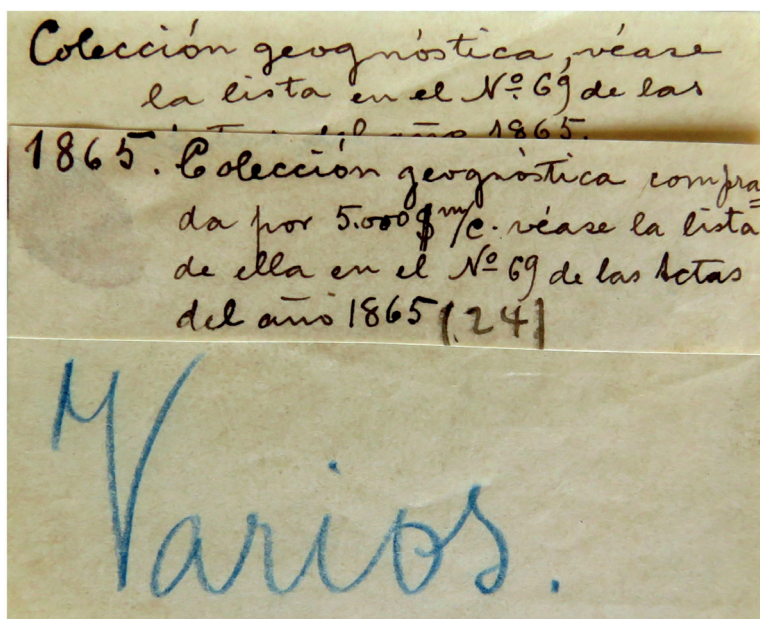 Colección geognóstica, véase
la lista en el Nº 69 de las
del año 1865.
1865. Colección geognóstica compra=
da por 5.000 $ m/c. véase la lista
de ella en el Nº 69 de las Actas
del año 1865 (24)
Varios.